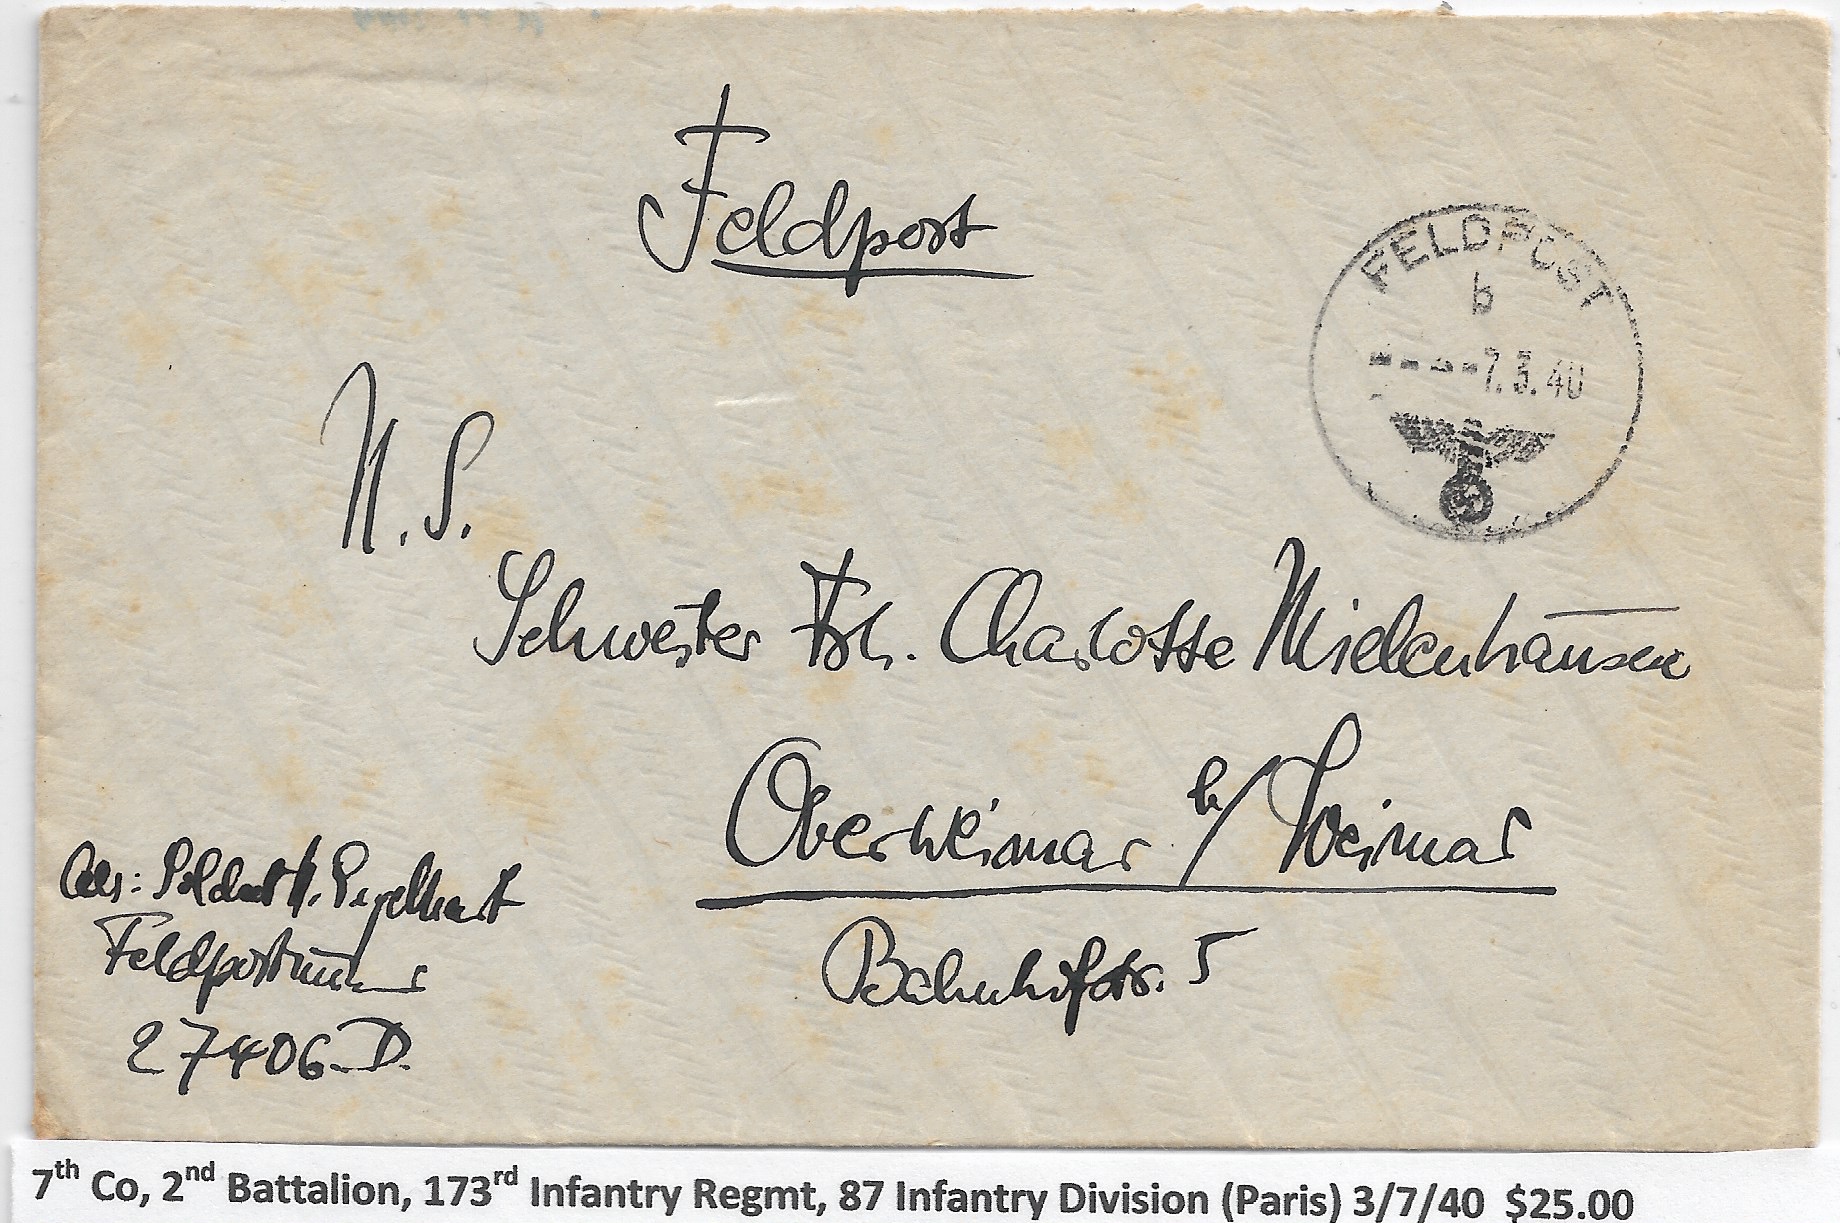 Feldpost
FELDPOST
b
7.3.40
N. S.
Schwester Frl. Charlotte Mielenhausen
Oberweimar b/ Weimar
Bahnhofstr. 5
Abs: Soldat
Feldpostnummer
27406-D.
7th Co, 2nd Battalion, 173rd Infantry Regmt, 87 Infantry Division (Paris) 3/7/40 $25.00